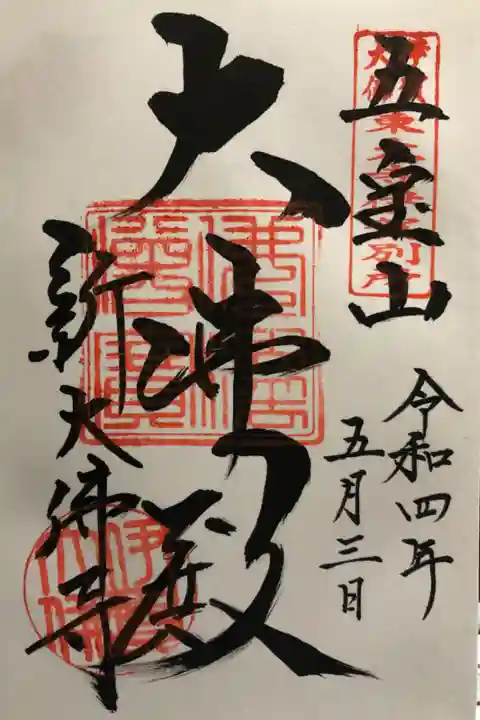 五宝山
令和四年
五月三日
大佛殿
新大佛寺